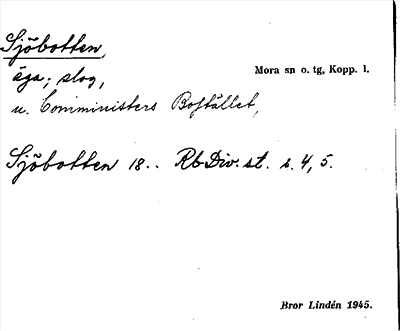 Sjöbotten,
äga; slog,
Mora sn o. tg, Kopp. l.
u. Comministers Bostället,
Sjöbotten 18.. Rb Div: st. s. 4, 5.
Bror Lindén 1945.